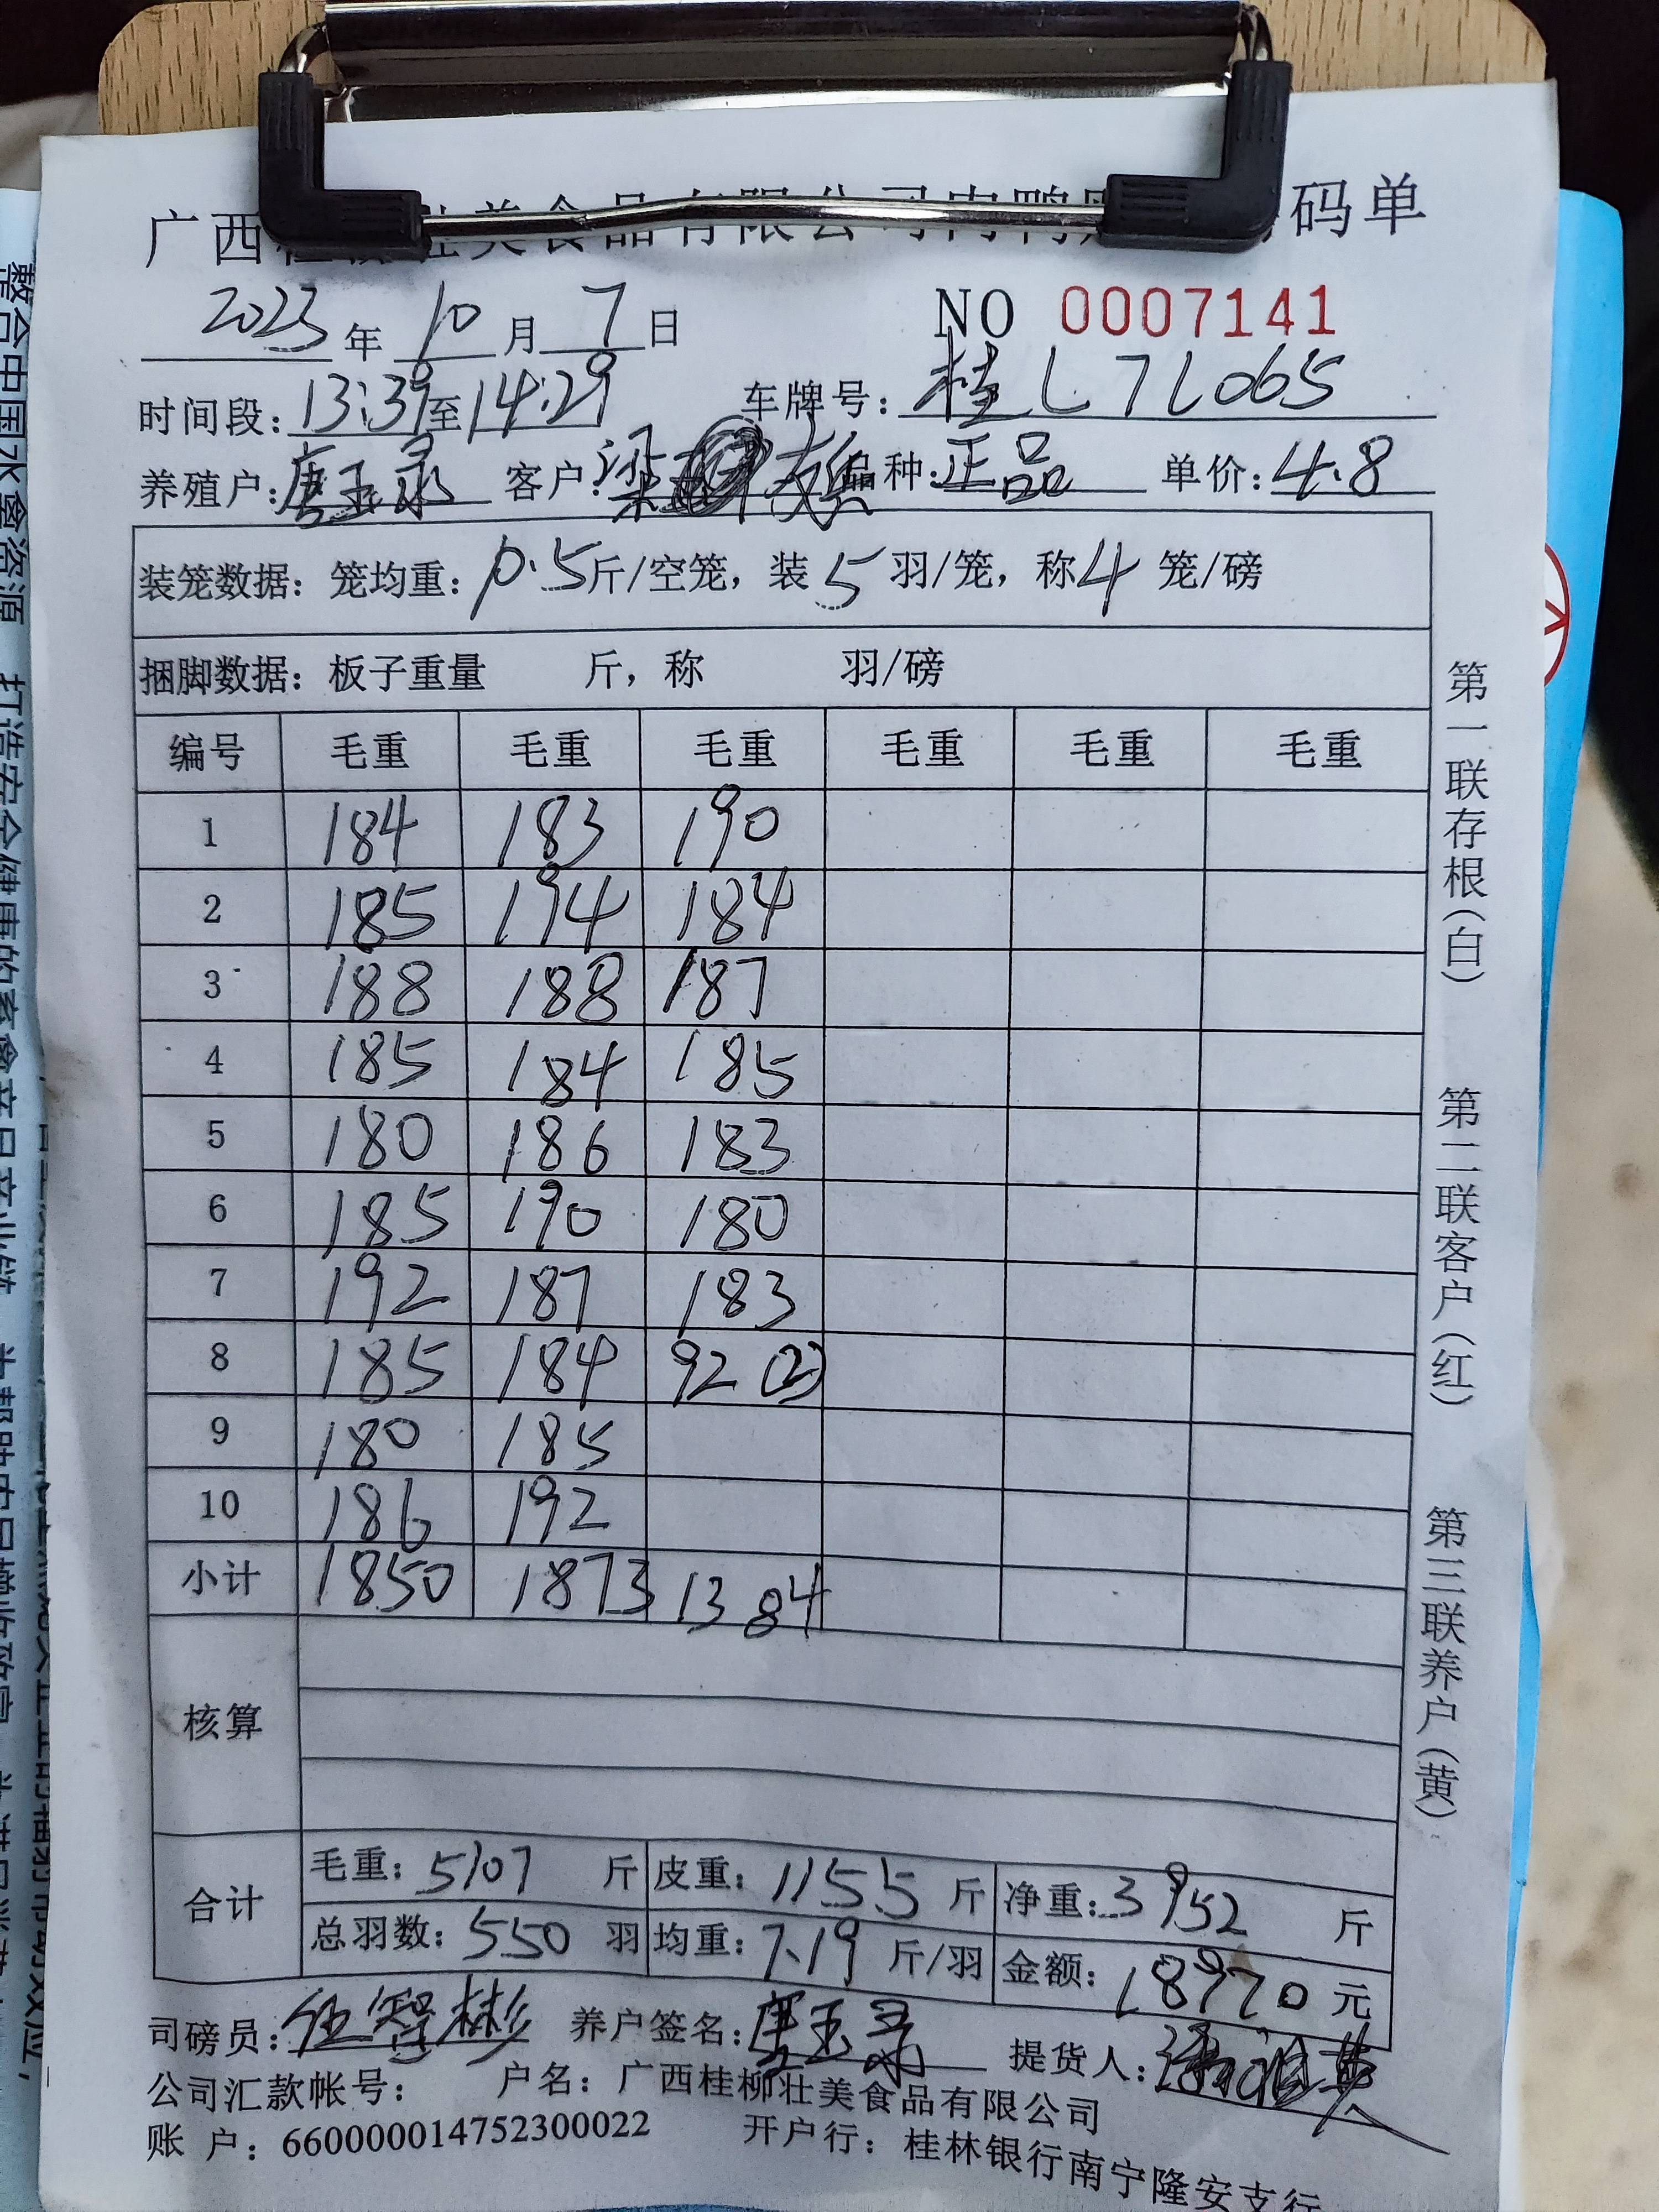 广西 壮美食品有限公司肉鸭 码单
2023年10月7日 NO 0007141
时间段:13:39至14:29 车牌号:桂L7L065
养殖户:唐玉录 客户:梁 品种:正品 单价:4.8
装笼数据:笼均重:10.5斤/空笼,装5羽/笼,称4笼/磅
捆脚数据:板子重量 斤,称 羽/磅
编号 毛重 毛重 毛重 毛重 毛重 毛重
1 184 183 190
2 185 194 184
3 188 188 187
4 185 184 185
5 180 186 183
6 185 190 180
7 192 187 183
8 185 184 92 ②
9 180 185
10 186 192
小计 1850 1873 1384
核算
合计 毛重:5107斤 皮重:1155斤 净重:3952斤
总羽数:550羽 均重:7.19斤/羽 金额:18970元
司磅员:伍智彬 养户签名:唐玉录 提货人:
公司汇款帐号: 户名:广西桂柳壮美食品有限公司
账 户:660000014752300022 开户行:桂林银行南宁隆安支行
第一联存根(白) 第二联客户(红) 第三联养户(黄)
整合中国水禽资源